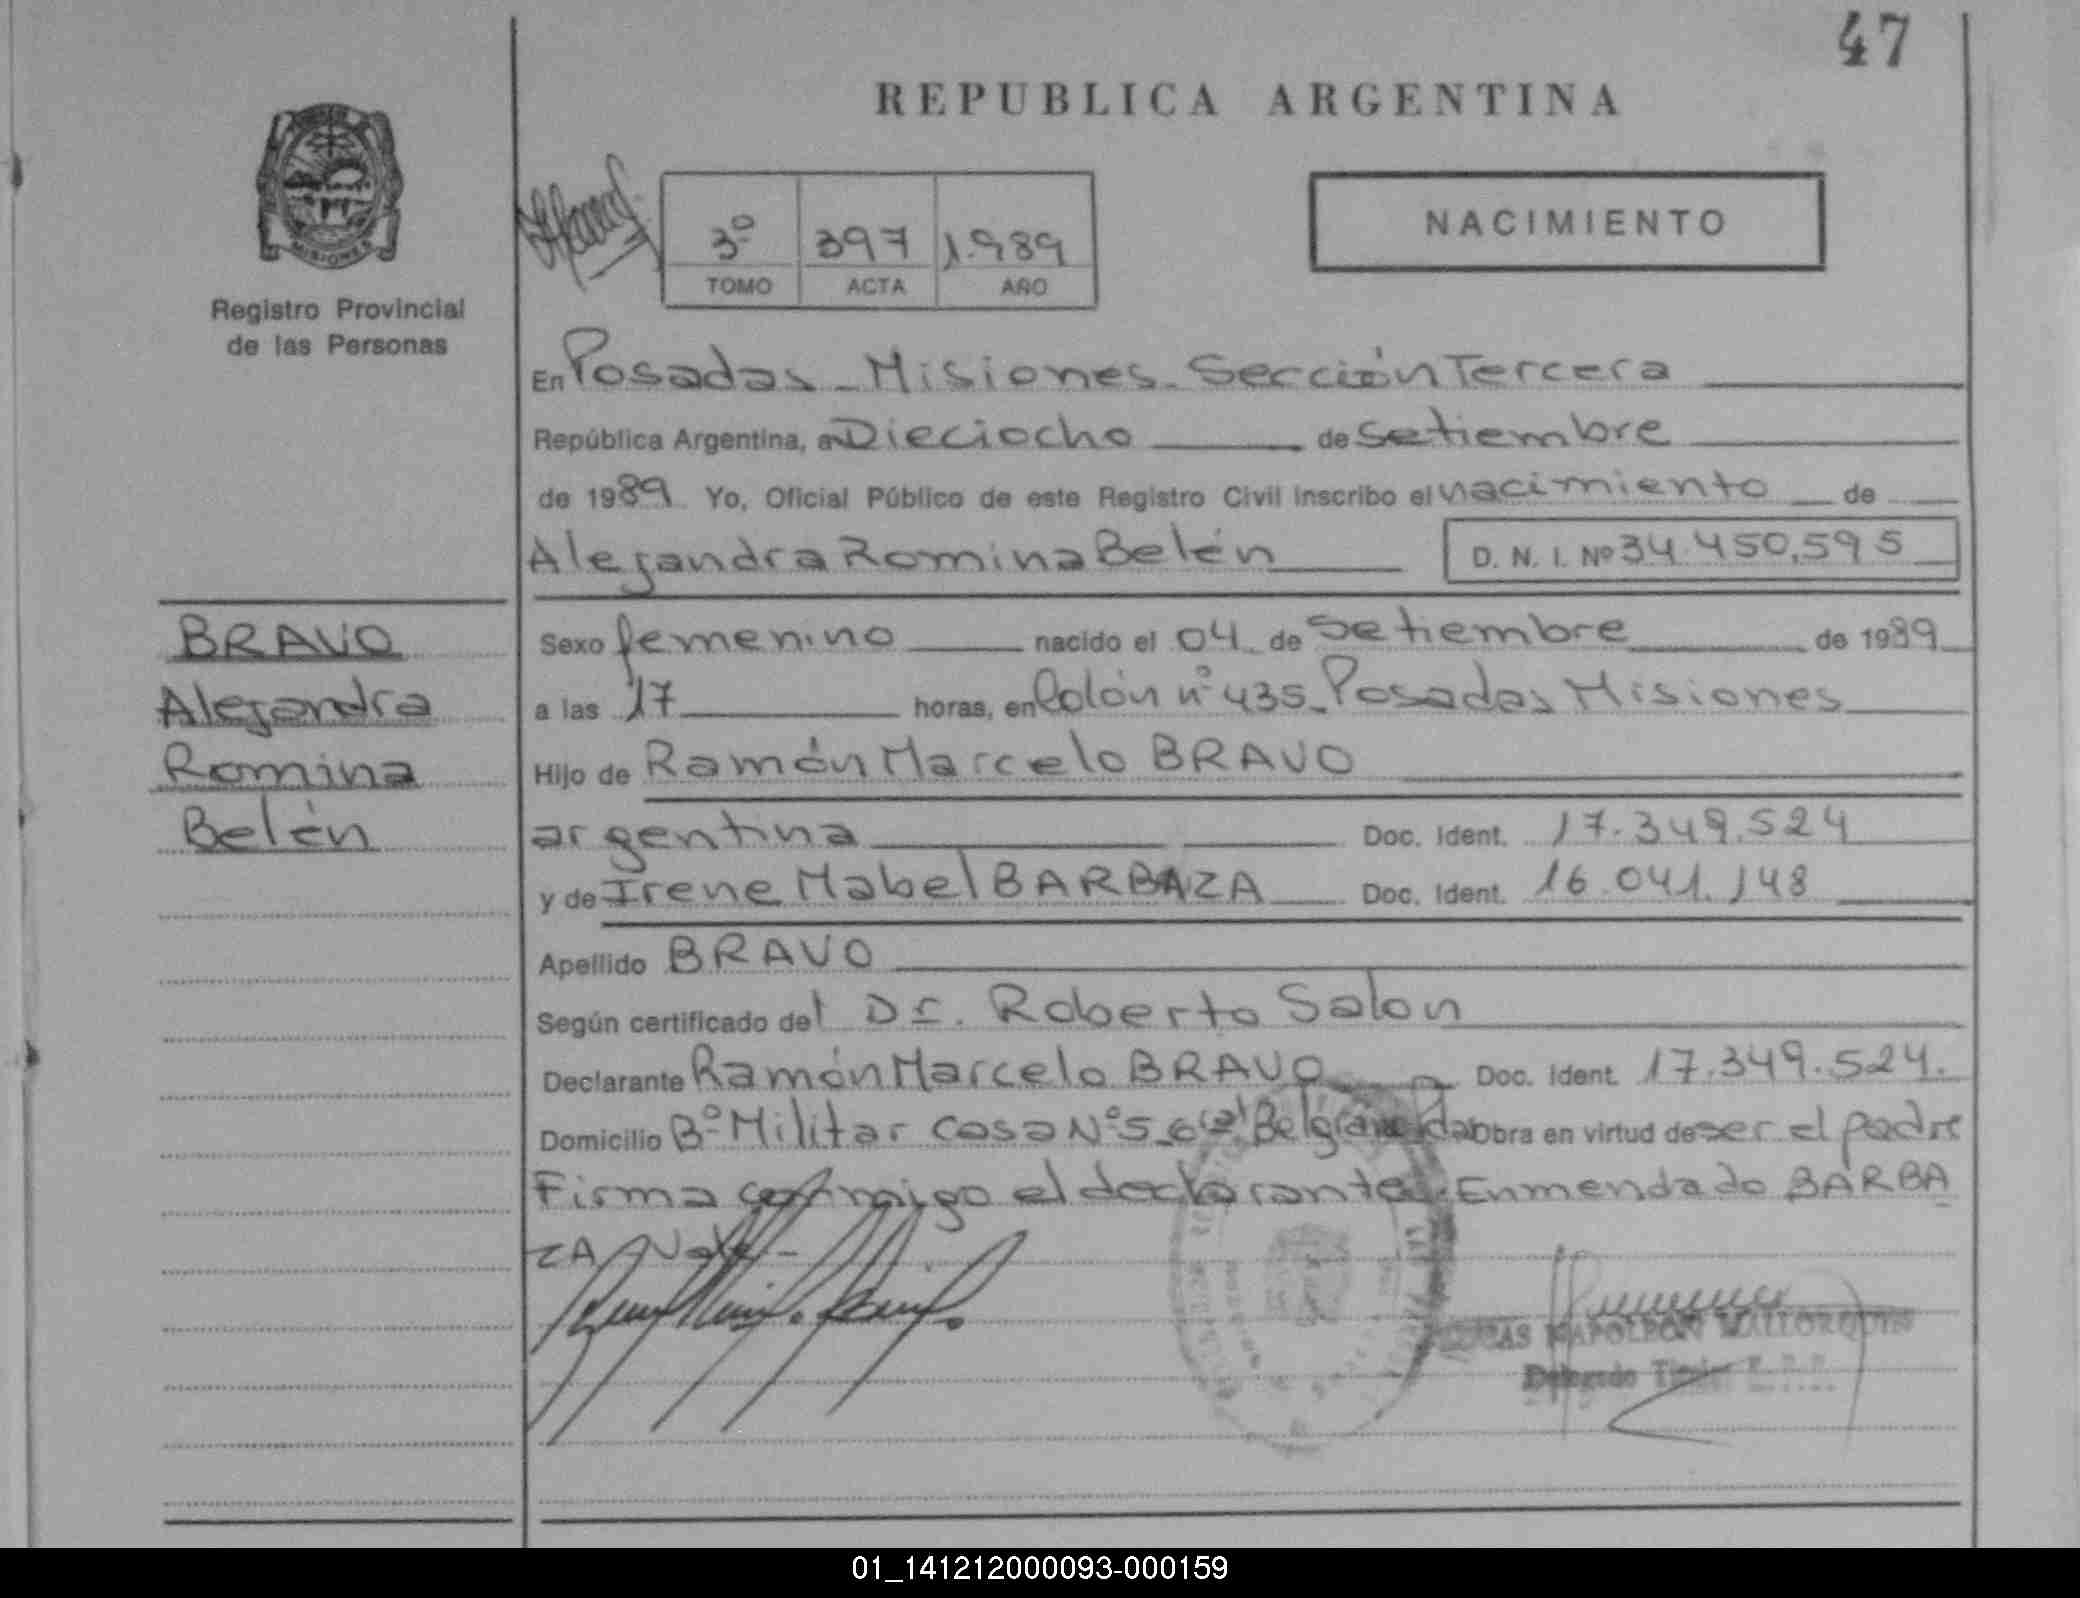 47
REPUBLICA ARGENTINA
MISIONES
Registro Provincial
de las Personas
3º 397 1.989
TOMO ACTA AÑO
NACIMIENTO
En Posadas - Misiones - Sección Tercera
República Argentina, a Dieciocho de Setiembre
de 1989 Yo, Oficial Público de este Registro Civil inscribo el nacimiento de
Alejandra Romina Belén D. N. I. Nº 34.450.595
BRAVO
Alejandra
Romina
Belén
Sexo femenino nacido el 04 de Setiembre de 1989
a las 17 horas, en Colón nº 435 - Posadas Misiones
Hijo de Ramón Marcelo BRAVO
argentina Doc. Ident. 17.349.524
y de Irene Mabel BARBAZA Doc. Ident. 16.041.148
Apellido BRAVO
Según certificado del Dr. Roberto Salon
Declarante Ramón Marcelo BRAVO Doc. Ident. 17.349.524.
Domicilio Bº Militar casa Nº 5 Belgrano Obra en virtud de ser el padre
Firma conmigo el declarante. Enmendado BARBA
ZA Vale -
LUCAS NAPOLEON MALLORQUIN
Delegado Titular
01_141212000093-000159